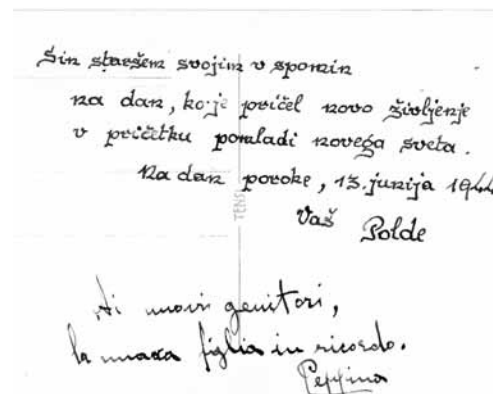 Sin staršem svojim v spomin
na dan, ko je pričel novo življenje
v pričetku pomladi novega sveta.
Na dan poroke, 13. junija 1944
Vaš
Polde
TENSI
Ai nuovi genitori,
la nuova figlia in ricordo.
Peppina